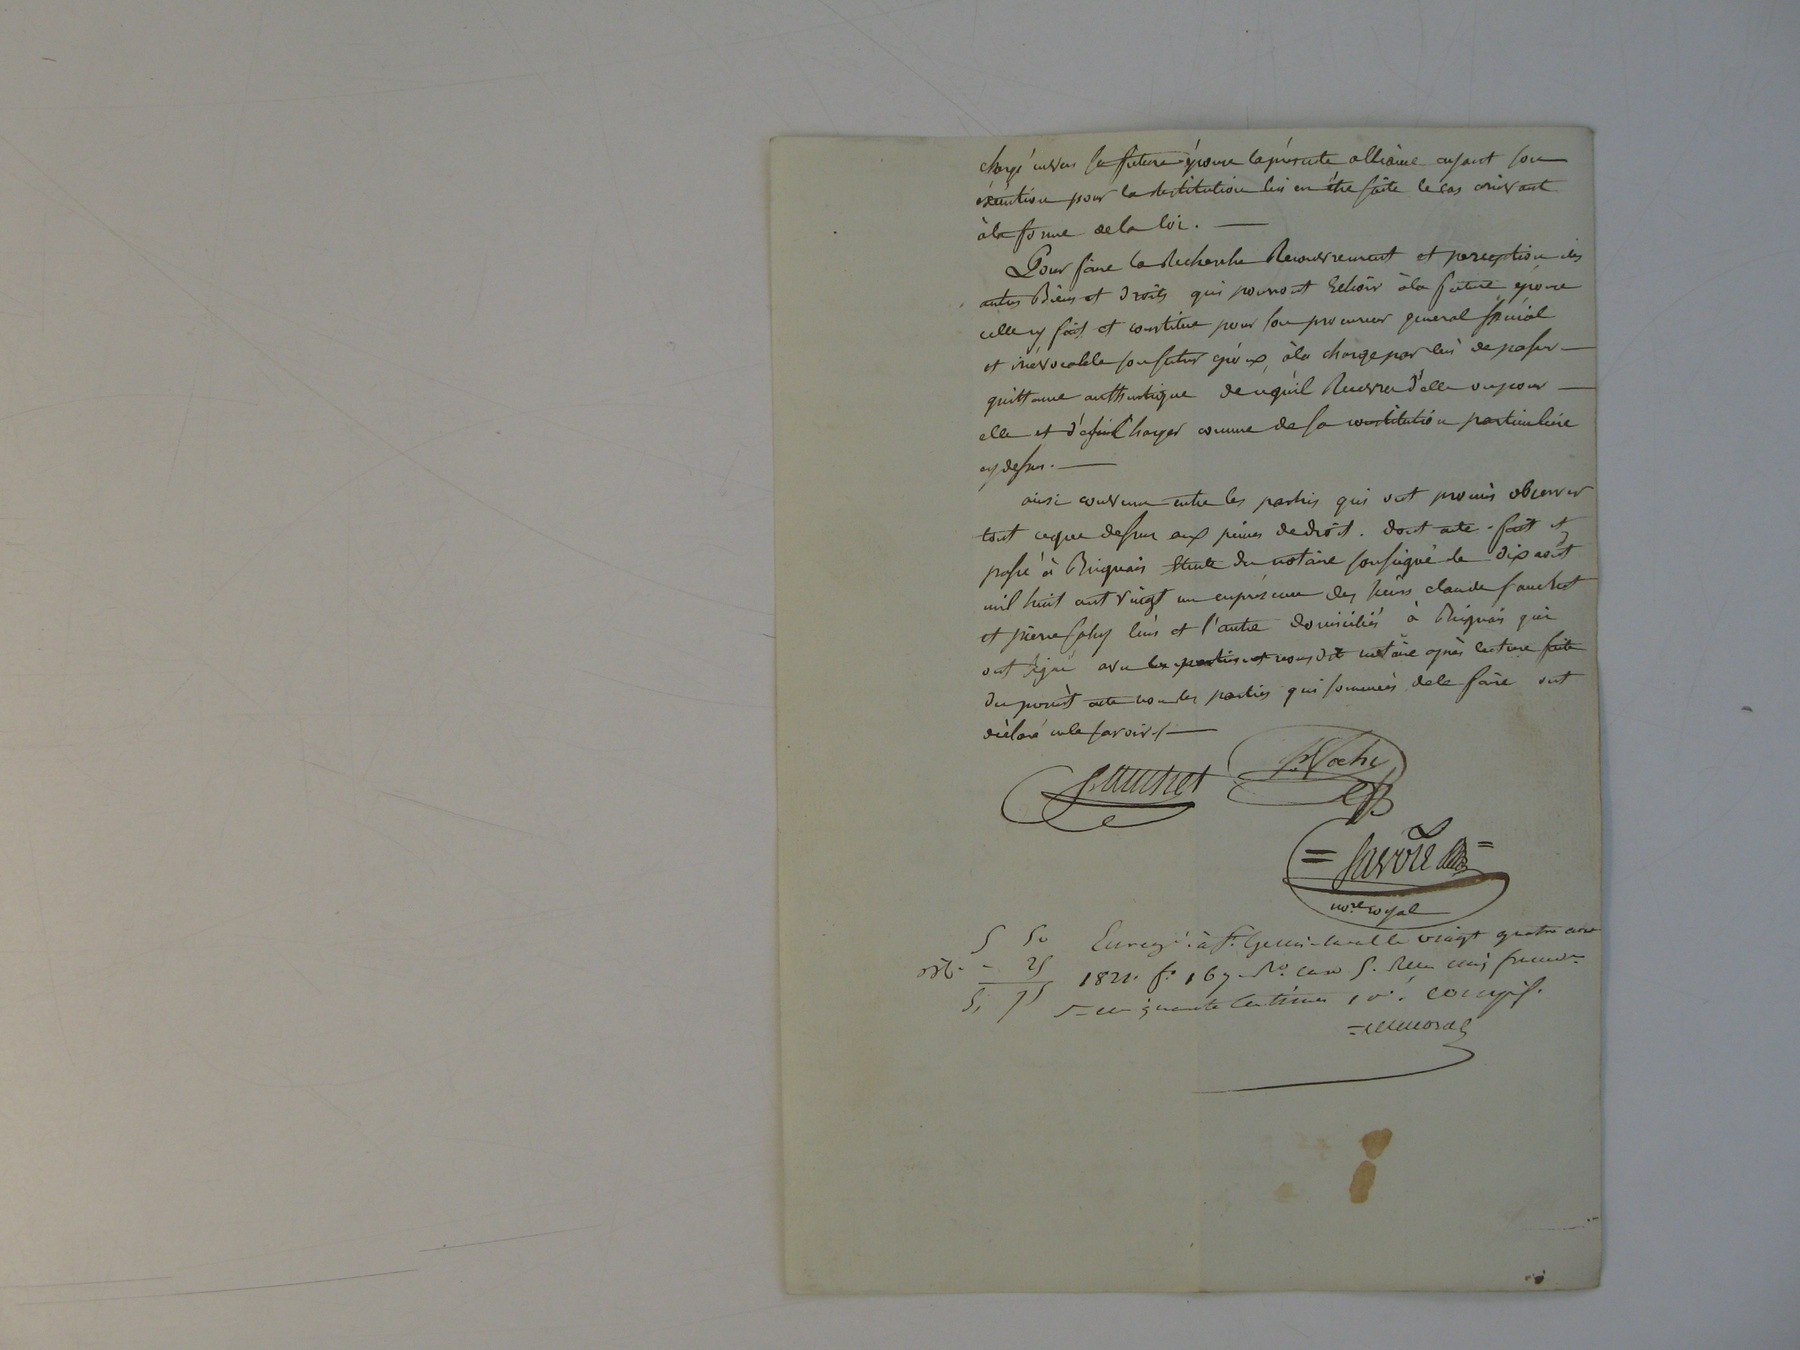 chargé envers la future épouse la présente alliance ayant son
exécution pour la restitution lui en être faite le cas arrivant
à la forme de la loi. —
Pour faire la Recherche Recouvrement et perception des
autres Biens et droits qui pourront Echoir à la future épouse
celle cy fait et constitue pour son procureur general spécial
et irrévocable son futur époux, à la charge par lui de passer —
quittance authentique de ce qu'il Recevra d'elle ou pour —
elle et d'en charger comme de sa constitution particulière
cy dessus. —
ainsi convenu entre les parties qui ont promis observer
tout ce que dessus aux peines de droit. dont acte fait et
passé à Brignais Etude du notaire soussigné le dix août
mil huit cent vingt un en présence des sieurs claude fauchet
et pierre l'un et l'autre domiciliés à Brignais qui
ont signé avec les parties et nous dit notaire après lecture faite
du présent acte non les parties qui sommées de le faire ont
déclaré ne le savoir /. —
fauchet
= =
nore. royal
5 50
- 25
5, 75
Enregé. à St. Genis-Laval le vingt quatre août
1821. fo. 167 Ro. case 5. Reçu cinq francs
cinquante Centimes 10e. compris.